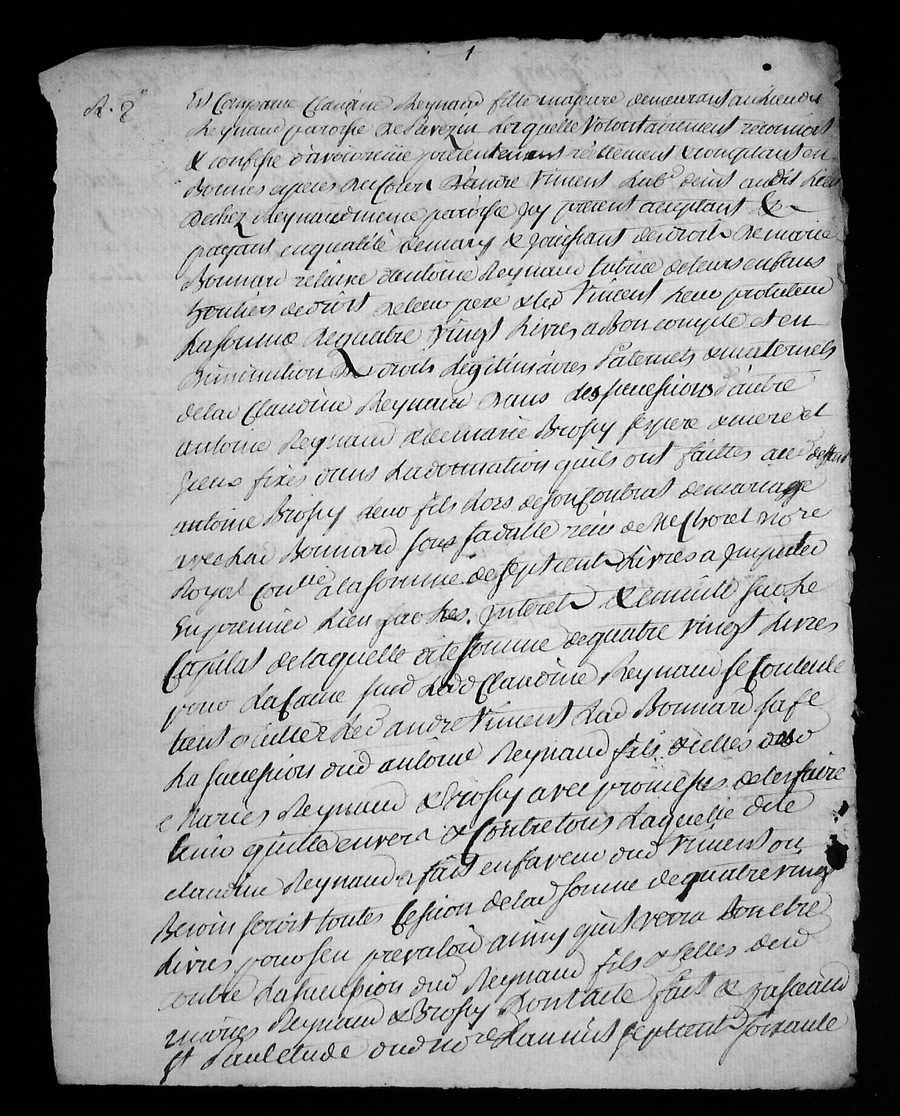 1
Est Comparue Claudine Reynaud fille majeure demeurant au lieu des
Reynaud paroisse de Pavezin laquelle volontairement reconnoit
& confesse d'avoir receüe presentement réellement & comptant en
Bonnes especes de cours d'andre Vincent dud
de chez Reynaud meme paroisse icy present acceptant &
payant en qualité de mary & jouissant de droits de marie
Bonnard relaire d'antoine Reynaud tutrice de leurs enfans
heritiers de droit de leur pere & led Vincent leur protuteur
La somme de quatre vingt Livres a Bon compte et en
Diminution des droits Légitimaires Paternels & maternels
de lad Claudine Reynaud dans des successions d'autre
antoine Reynaud & de marie Brossy ses pere & mere et
Iceux fixés dans la donnation quils ont faittes aud deffunt
antoine Brossy leur fils Lors de son Contrat de mariage
avec lad Bonnard sous sa datte reçu de Me Choret no.re
Royal a la somme de sept cent Livres a Imputer
En premier Lieu sur les Interets & ensuite sur le
Capital de laquelle dite somme de quatre vingt Livres
pour La Cause susd Lad Claudine Reynaud se Contente
tient quitte led andre Vincent Lad Bonnard sa fe
La succession dud antoine Reynaud fils & celles desd
Maries Reynaud & Brossy avec promesse de les faire
tenir quitte envers & Contre tous Laquelle dite
claudine Reynaud a fait en faveur dud Vincent ou
Besoin seroit toutes Cession de lad somme de quatre vingt
Livres pour sen prevaloir ainsy quil verra Bon etre
contre La succession dud Reynaud fils & celles desd
maries Reynaud & Brossy Dont acte fait & passé aud
Pavezin Etude dud no.re L'an mil sept cent soixante